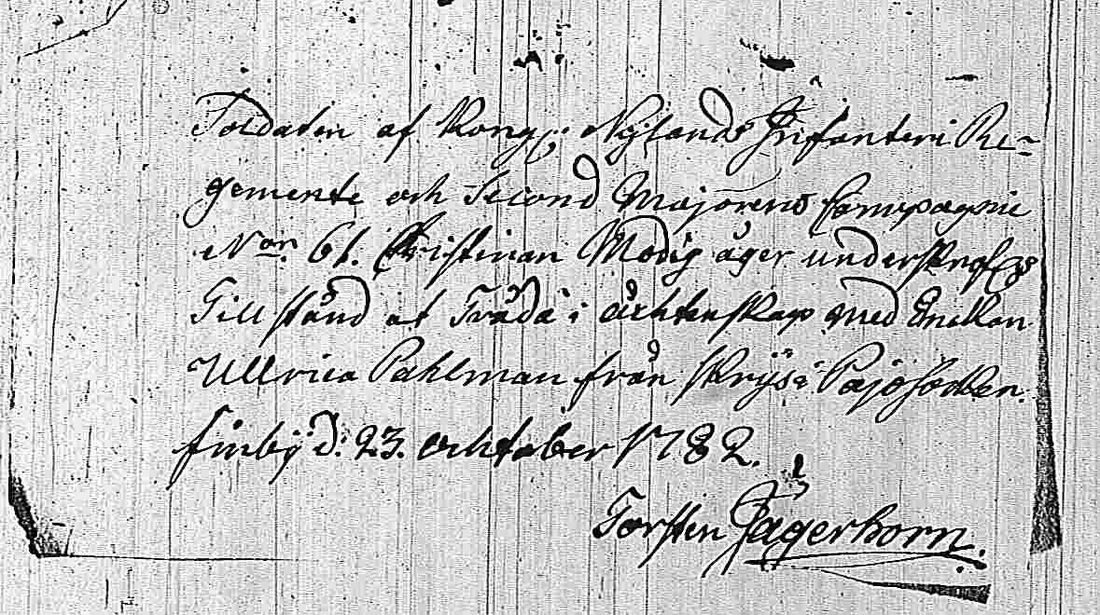 Soldaten af Kong: Nylands Infanteri Re-
gemente och Second Majorens Compagnie
Non. 61. Christman Modig äger underskrefs
Tillstånd at Träda i ächtenskap med Enckan
Ullrica Pahlman från Skrijs i Påjo Sockn.
finby d: 23. ochtober 1782.
Torsten Jägerhorn.